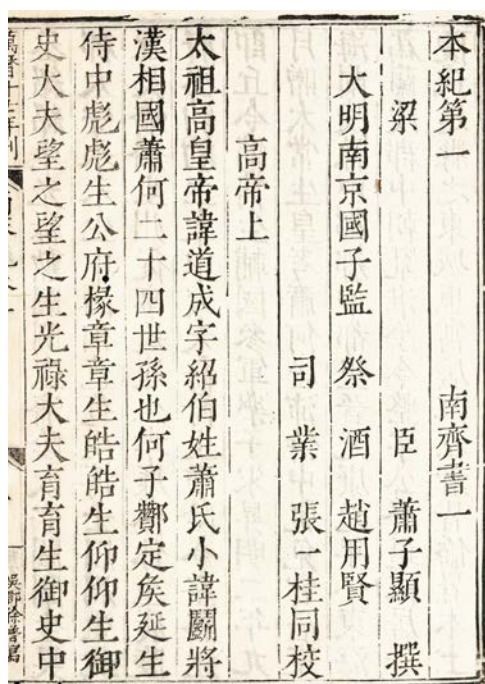 本紀第一 南齊書一
梁 臣 蕭子顯 撰
大明南京國子監 祭 酒 趙用賢
司 業 張一桂同校
高帝上
太祖高皇帝諱道成字紹伯姓蕭氏小諱鬭將
漢相國蕭何二十四世孫也何子酇定矦延生
侍中彪彪生公府掾章章生皓皓生仰仰生御
史大夫望之望之生光祿大夫育育生御史中